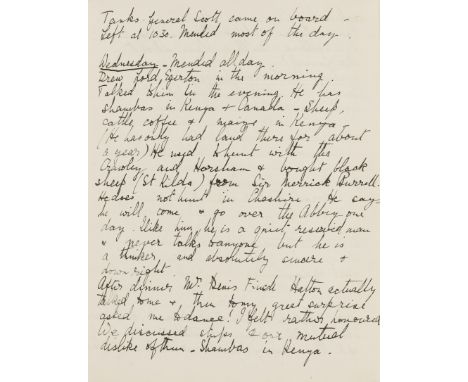 Tanks. General Scott came on board -
Left at 10.30. Mended most of the day.
Wednesday - Mended all day.
Drew Lord Egerton in the morning.
Talked to him in the evening. He has
shambas in Kenya & Canada - Sheep,
cattle, coffee & maize in Kenya -
(He has only had land there for about
a year) He used to hunt with the
Crawley and Horsham & bought black
sheep (St Kilda) from Sir Merrick Burrell.
He does not hunt in Cheshire. He says
he will come & go over the Abbey one
day. I like him, he is a quiet reserved man
& never talks to anyone, but he is
a thinker and absolutely sincere &
downright.
After dinner Mr. Denis Finch Hatton actually
talked to me & then to my great surprise
asked me to dance! I felt rather honoured
We discussed ships & our mutual
dislike of them - Shambas in Kenya.